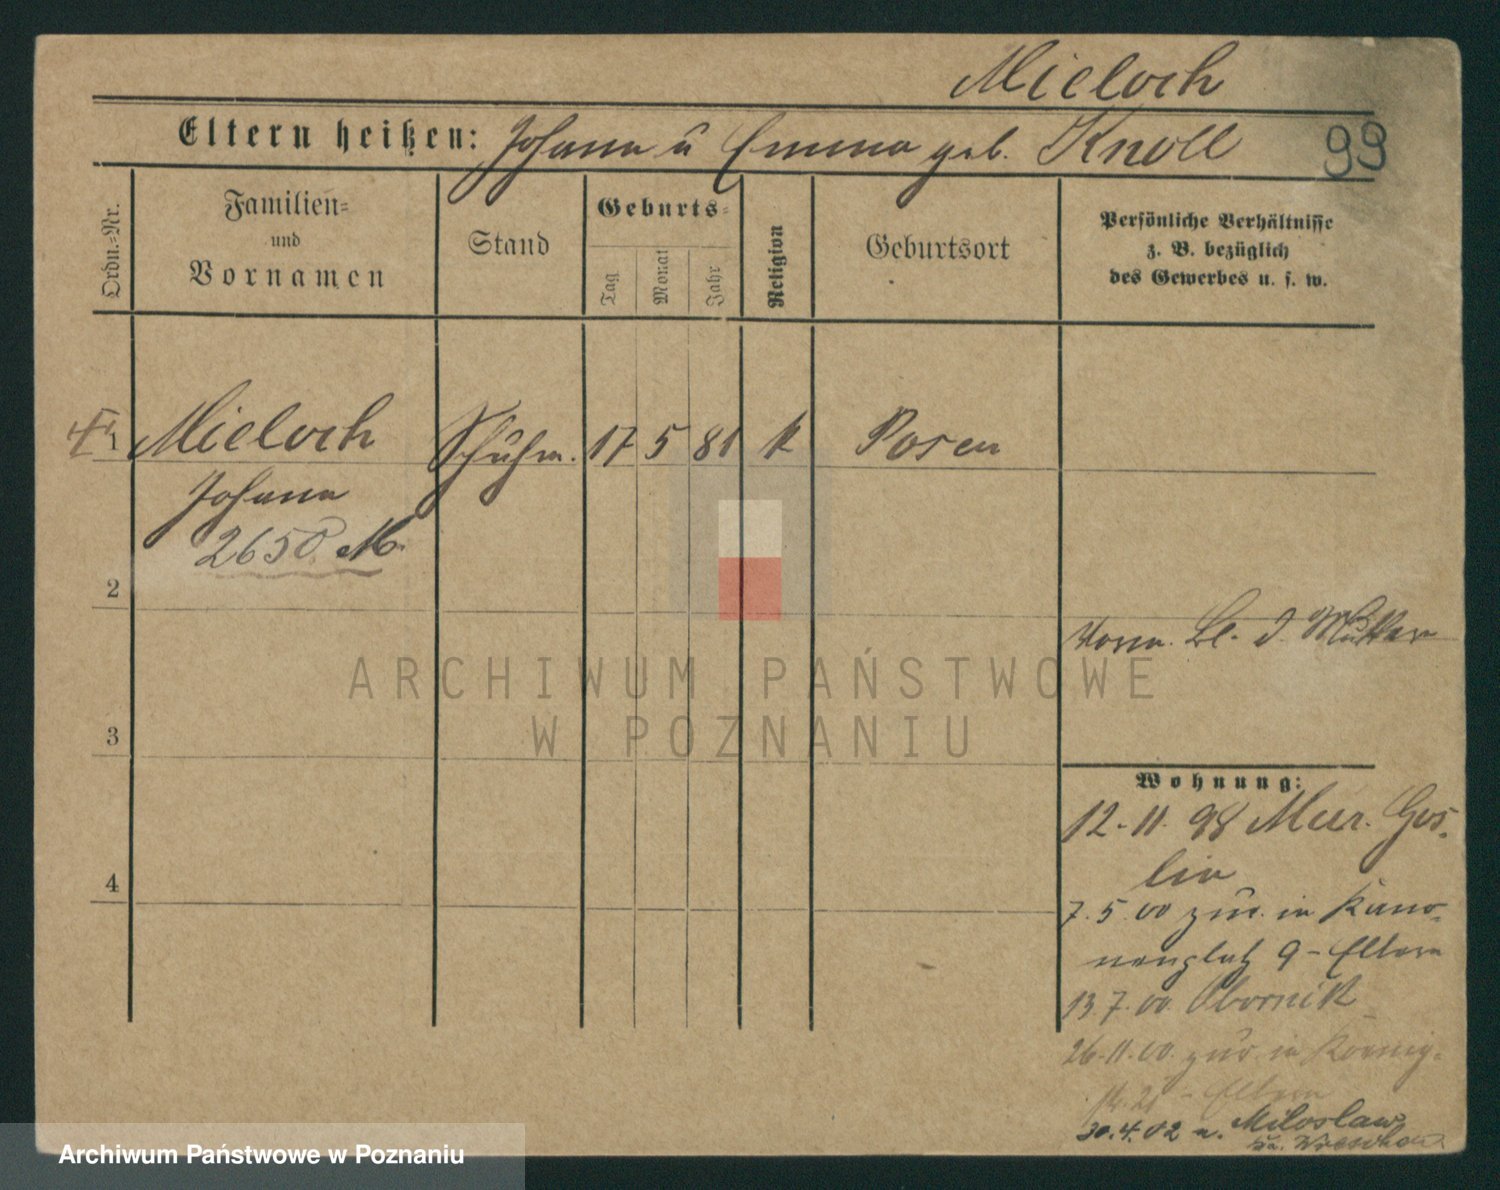 Mieloch
Eltern heißen: Johann u Emma geb. Knoll
99
Ordn.=Nr.
Familien=
und
Vornamen
Stand
Geburts=
Tag
Monat
Jahr
Religion
Geburtsort
Persönliche Verhältnisse
z. B. bezüglich
des Gewerbes u. s. w.
1 Mieloch Schuhm. 17 5 81 k Posen
Johann
2650 M.
2
Vorm. d. Mutter
3
4
Wohnung:
12.11.98 Mur. Gos-
lin
7.5.00 zur. in Kano-
nenplatz 9 - Eltern
13.7.00 Obornik
26.11.00 zur. in Koenig-
- Eltern
30.4.02 n. Miloslaw
Kr. Wreschen
ARCHIWUM PAŃSTWOWE
W POZNANIU
Archiwum Państwowe w Poznaniu